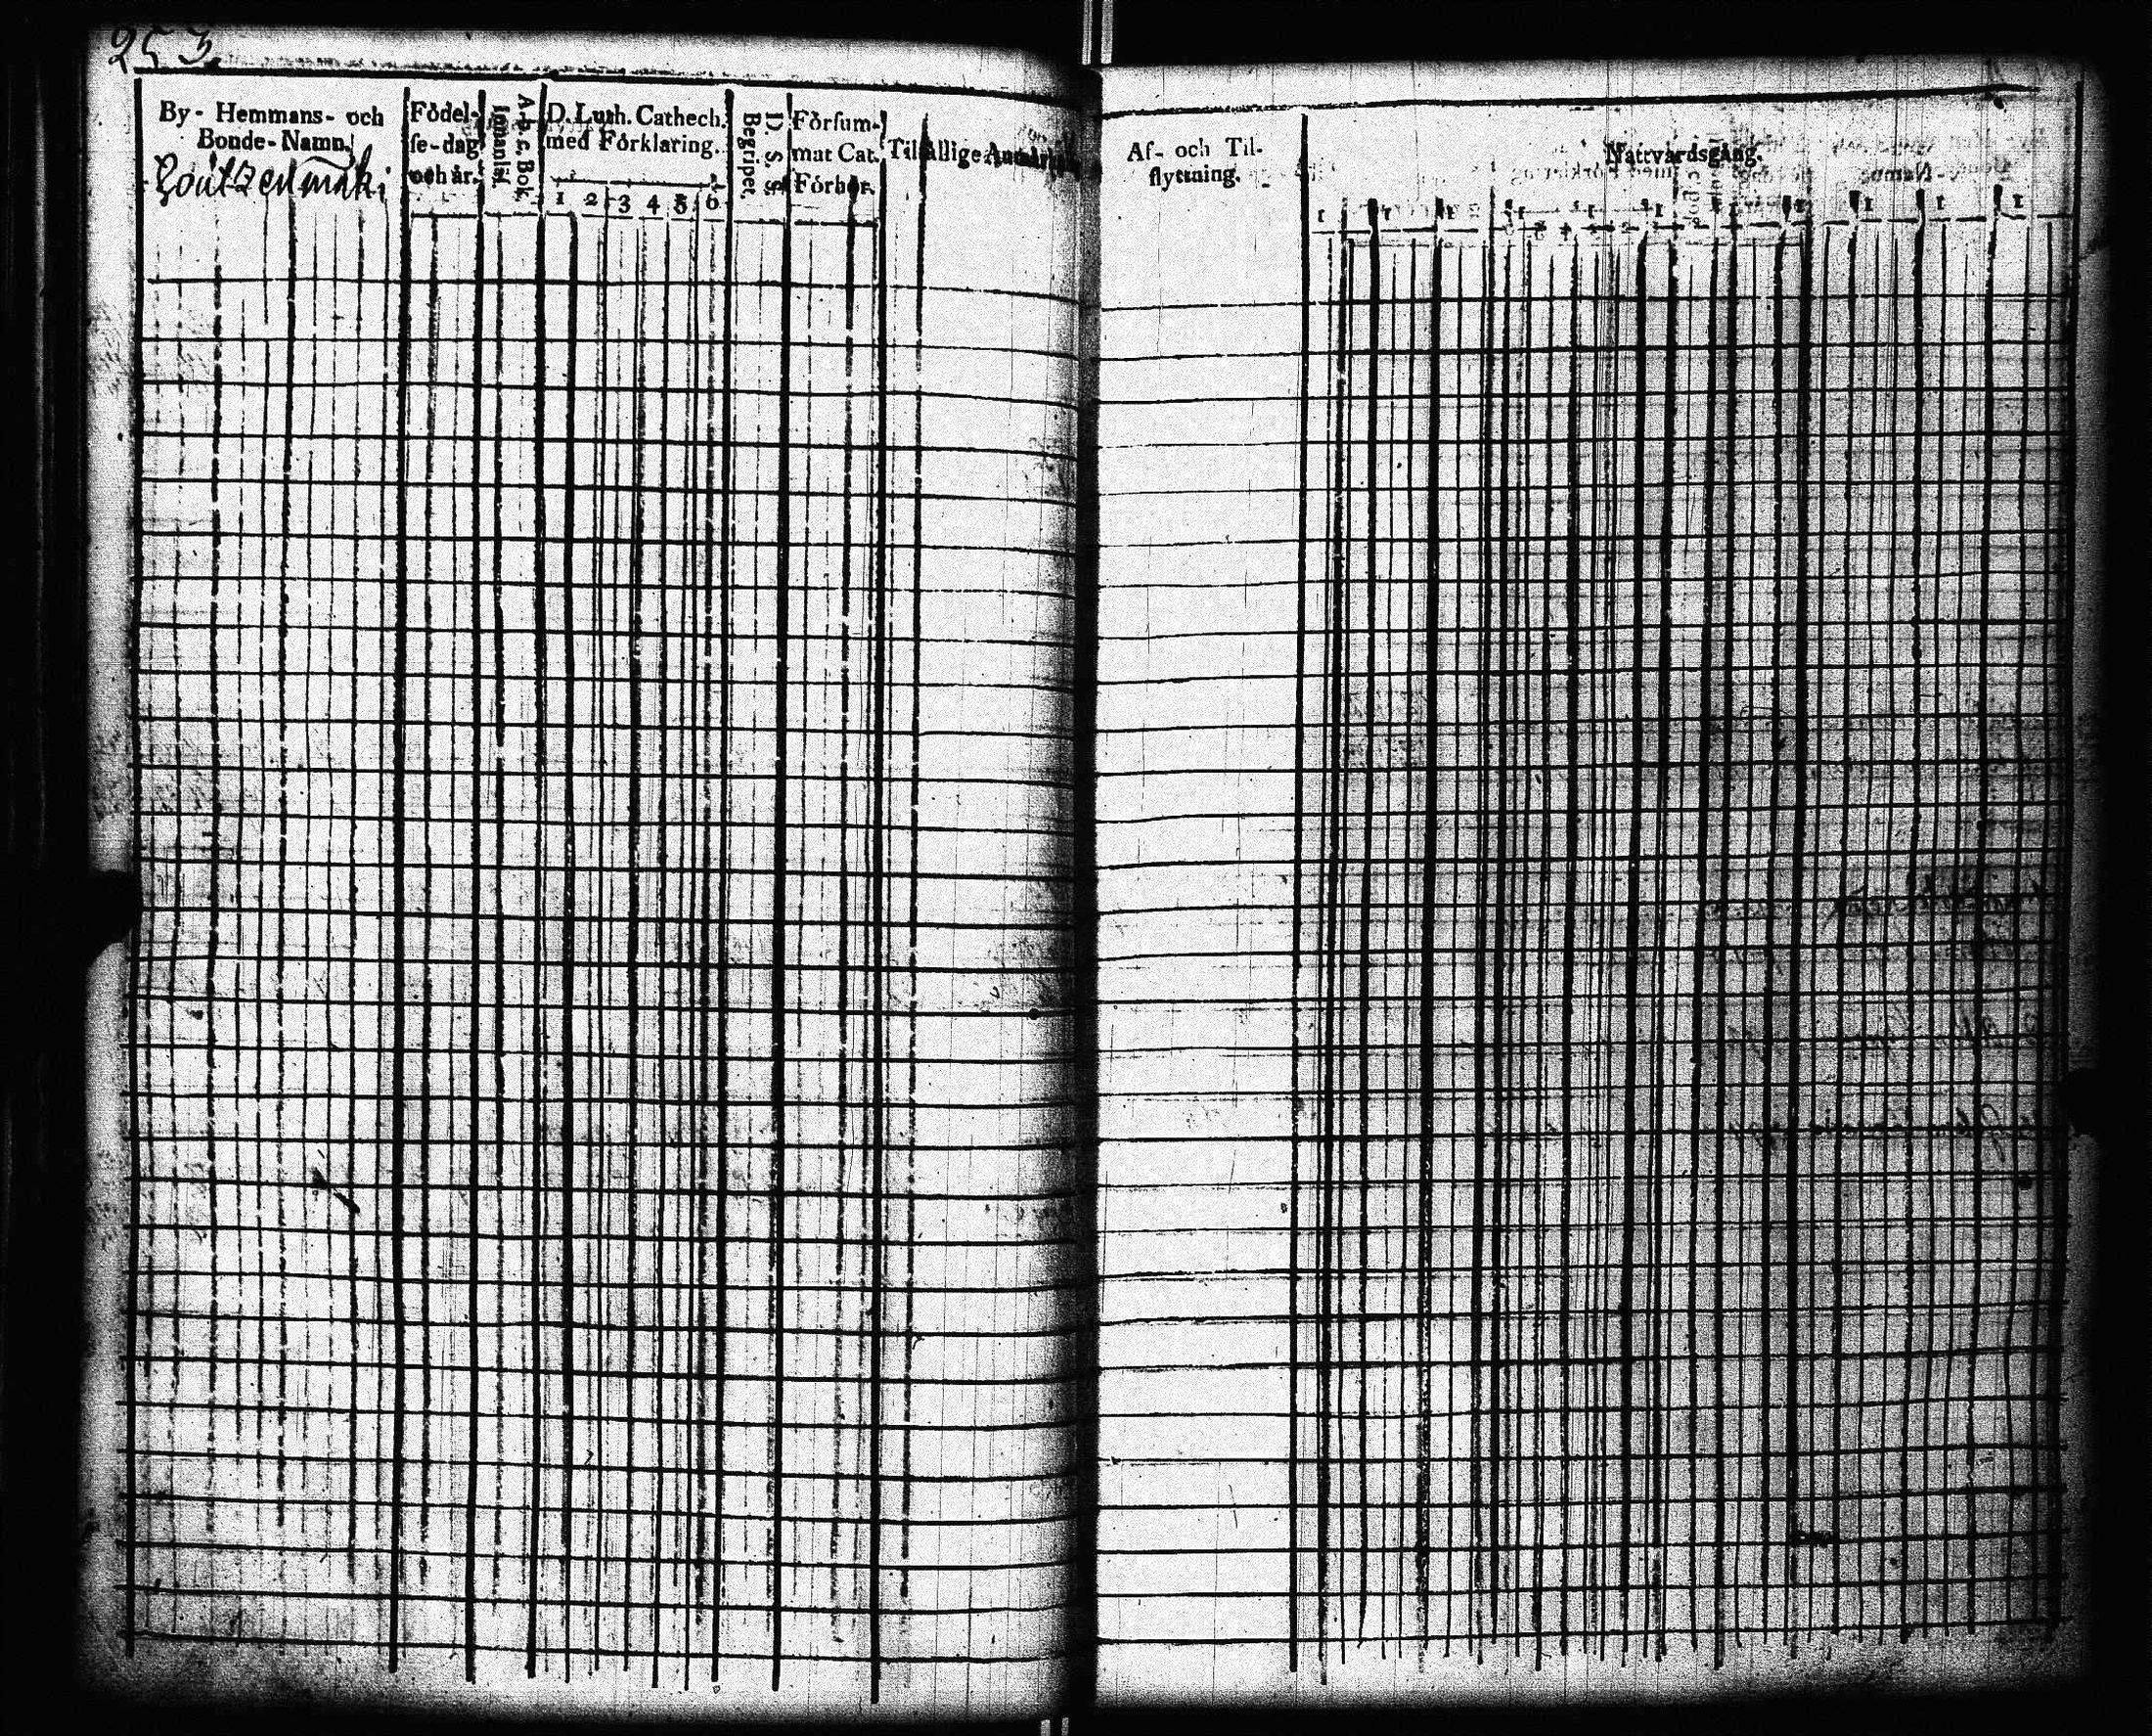 253.
By- Hemmans- och
Bonde-Namn.
Joutzenmäki
Födel-
se-dag
och år.
Innanläs.
A. b. c. Bok.
D. Luth. Cathech.
med Förklaring.
1 2 3 4 5 6
D. S. S.
Begripet.
Försum-
mat Cat.
Förhör.
Tilfällige
Af- och Til-
flyttning.
Nattvardsgång.
1 1 1 1 1 1 1 1 1 1